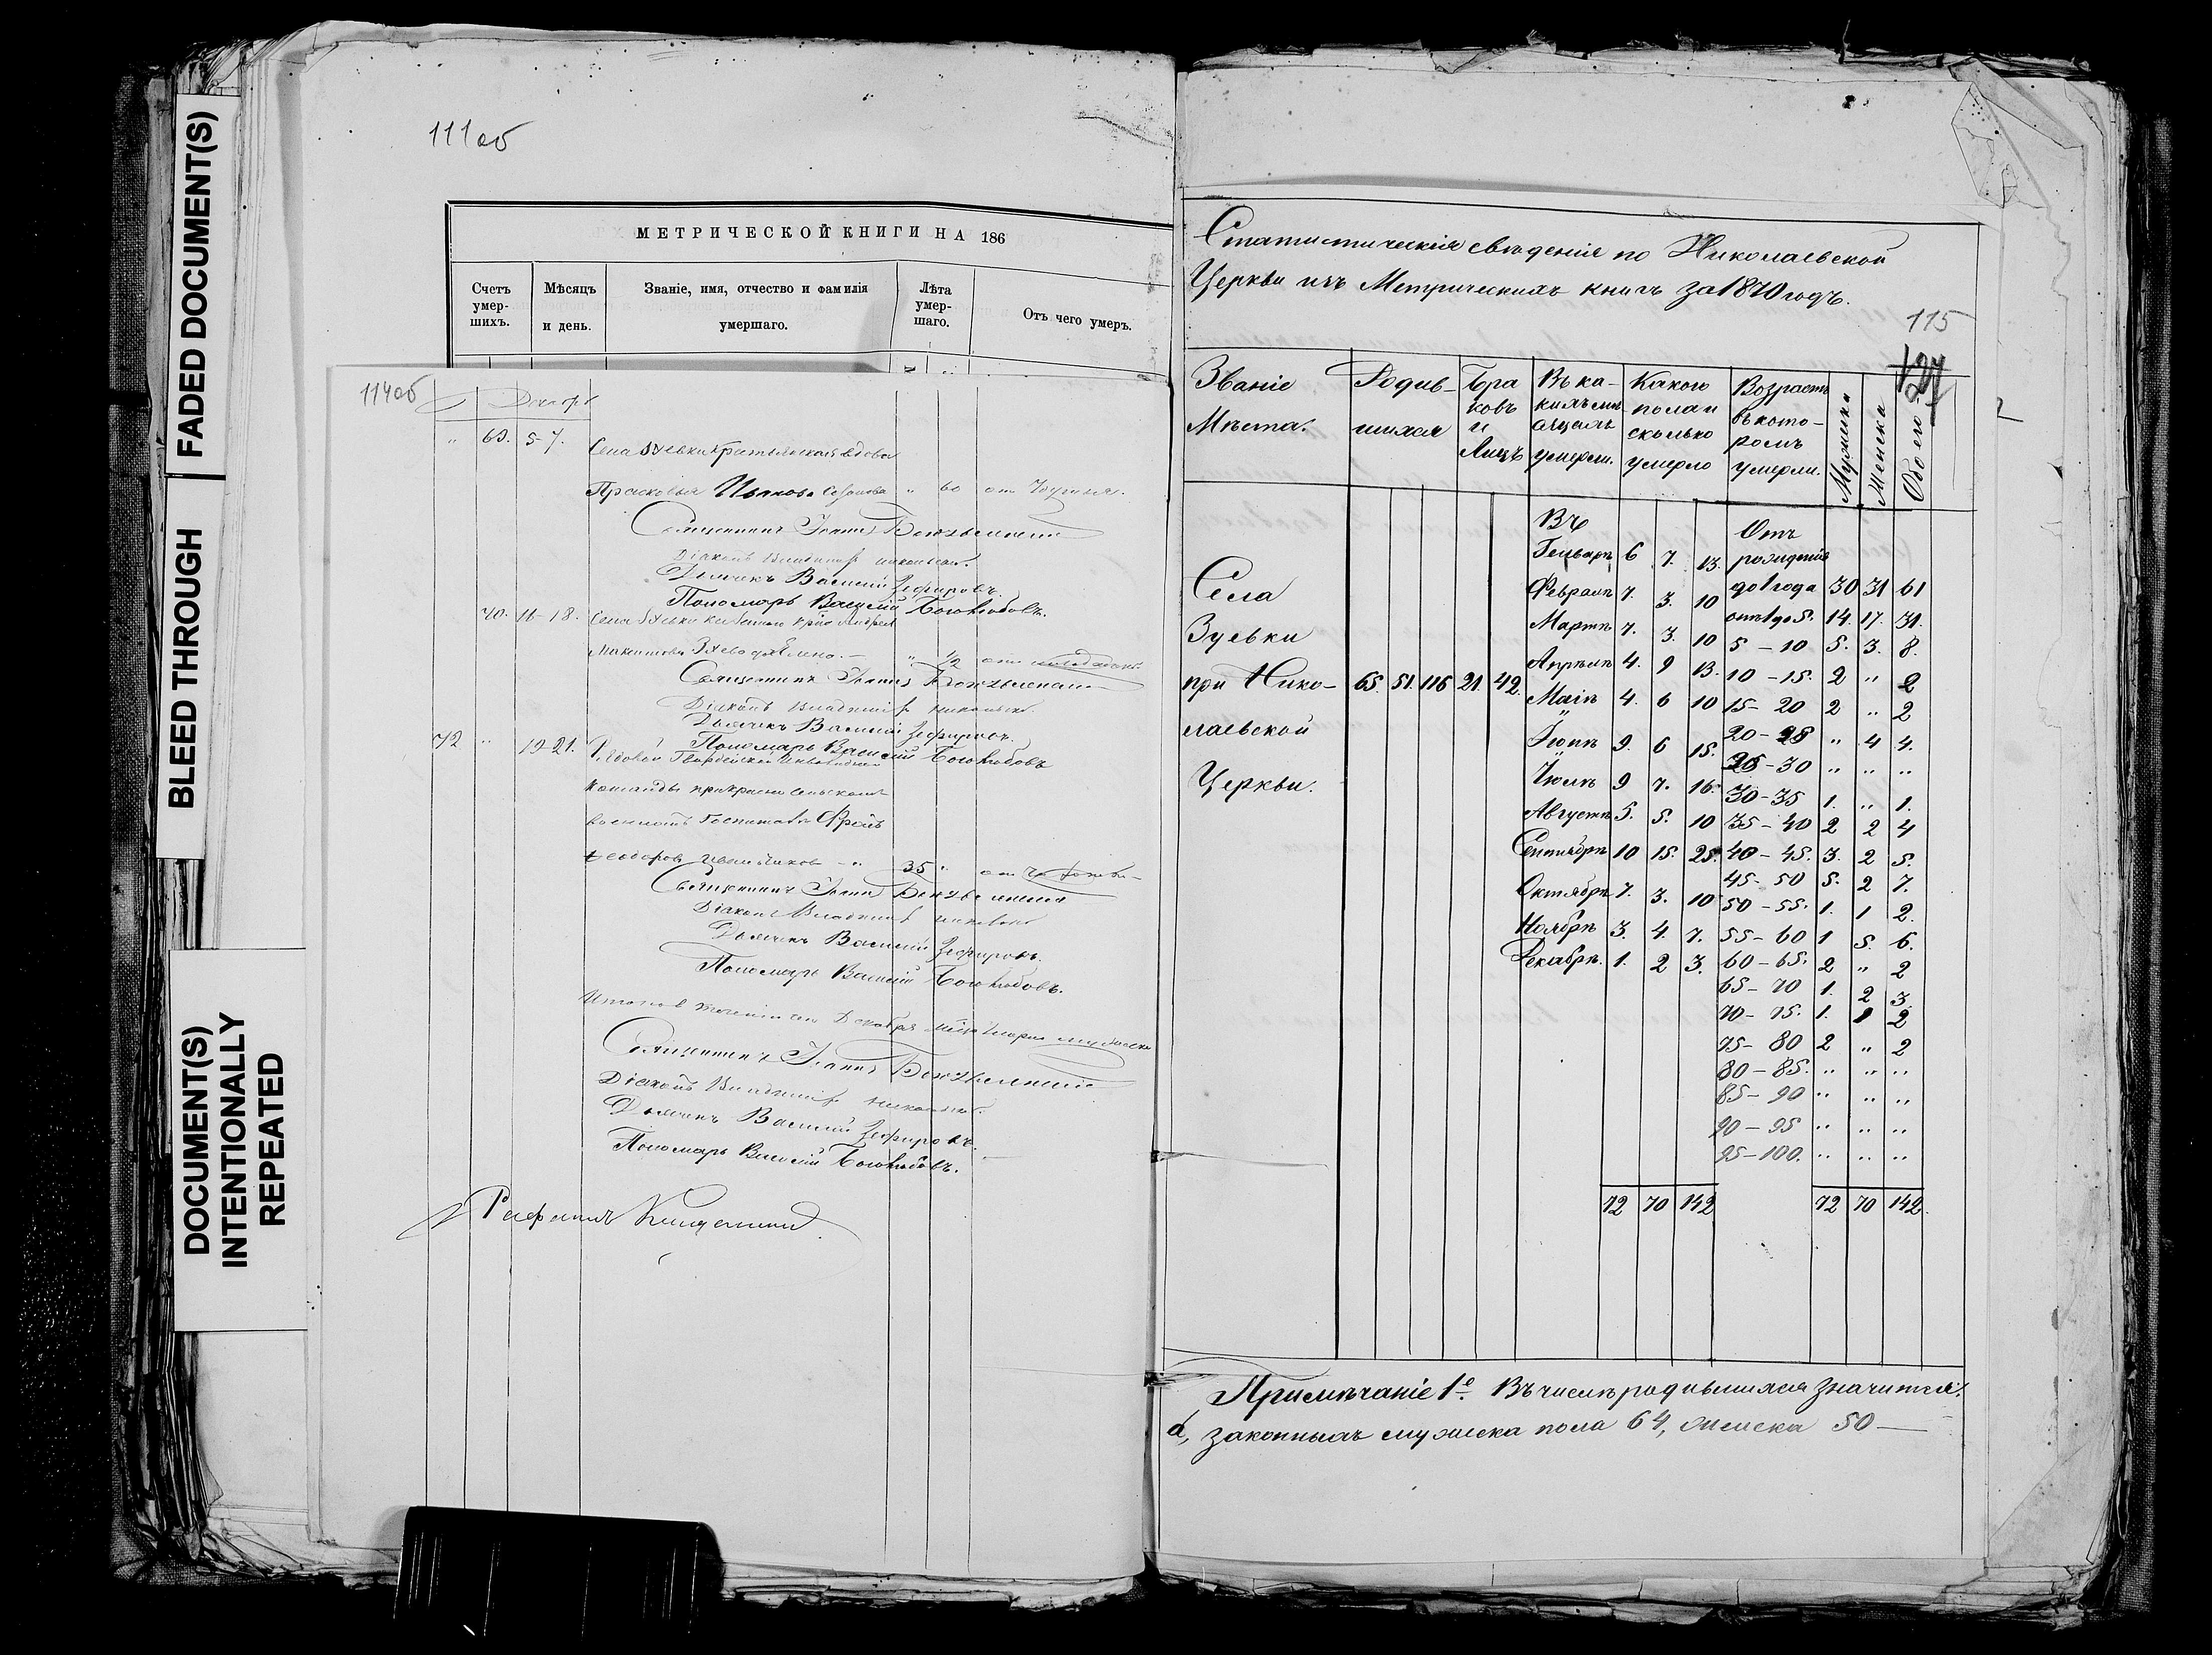 FADED DOCUMENT(S)
BLEED THROUGH
DOCUMENT(S)
INTENTIONALLY
REPEATED
111об
МЕТРИЧЕСКОЙ КНИГИ НА 186
Счетъ умер-шихъ.
Мѣсяцъ и день.
Званіе, имя, отчество и фамилія умершаго.
Лѣта умер-шаго.
Отъ чего умеръ.
114об
„ 69. 5-7. Села Зуевки крестьянская вдова
Прасковья „ 60 от
Священникъ Іоаннъ
Діаконъ Владимір
Дьячекъ Василій Зефировъ.
Пономарь Василій Боголюбовъ.
70. 16-18. Села Зуевки
„ 1/2 от
Священникъ Іоаннъ
Діаконъ Владимір
Дьячекъ Василій Зефировъ.
Пономарь Василій Боголюбовъ
72 „ 19-21. Рядовой Гвардейской Инвалидной
команды при
военномъ Госпиталѣ
35 „ от
Священникъ Іоаннъ
Діаконъ Владимір
Дьячекъ Василій Зефировъ.
Пономарь Василій Боголюбовъ.
Декабря
Священникъ Іоаннъ
Діаконъ Владимір
Дьячекъ Василій Зефировъ.
Пономарь Василій Боголюбовъ.
Статистическія свѣденія по Николаевской
Церкви изъ Метрическихъ книгъ за 1870 годъ.
115
124
Званіе Мѣста.
Родив-шихся
Бра ковъ и Лицъ
Въ ка-кихъ мѣ-сяцахъ умерли.
Какого пола и сколько умерло
Возрастъ въ кото-ромъ умерли.
Мужеска
Женска
Обоего
Села
Зуевки
при Нико-
лаевской
Церкви.
65. 51. 116 21. 42.
Въ
Генварѣ 6 7. 13.
Февралѣ 7. 3. 10
Мартѣ 7. 3. 10
Апрѣлѣ 4. 9 13.
Маіѣ 4. 6 10
Іюнѣ 9. 6 15.
Іюлѣ 9 7. 16.
Августѣ 5. 5. 10
Сентябрѣ 10 15. 25.
Октябрѣ 7. 3. 10
Ноябрѣ 3. 4. 7.
Декабрѣ. 1. 2 3.
72 70 142
Отъ
рожденія
до 1 года 30 31 61
отъ 1 до 5. 14. 17. 31.
5 - 10 5. 3. 8.
10 - 15. 2 „ 2
15 - 20 2 „ 2
20 - 25 „ 4 4.
25 - 30 „ „ „
30 - 35 1. „ 1.
35 - 40 2 2 4
40 - 45. 3. 2 5.
45 - 50 5. 2 7.
50 - 55. 1. 1 2.
55 - 60 1 5. 6.
60 - 65. 2 „ 2
65 - 70 1. 2 3.
70 - 75. 1. 1 2
75 - 80 2 „ 2
80 - 85. „ „ „
85 - 90 „ „ „
90 - 95 „ „ „
95 - 100. „ „ „
72 70 142.
Примѣчаніе 1е. Въ числѣ родившихся значится:
а, законныхъ мужеска пола 64, женска 50 —